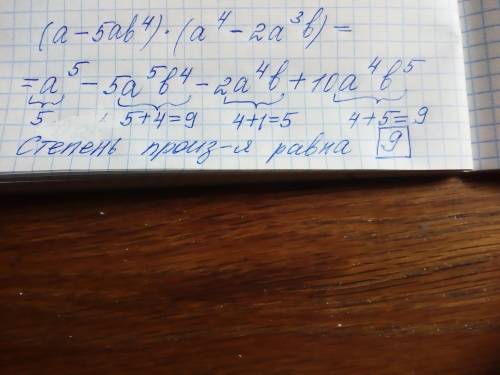 (a-5ab⁴)·(a⁴-2a³b)=
=a⁵-5a⁵b⁴-2a⁴b+10a⁴b⁵
5 5+4=9 4+1=5 4+5=9
Степень произ-я равна 9